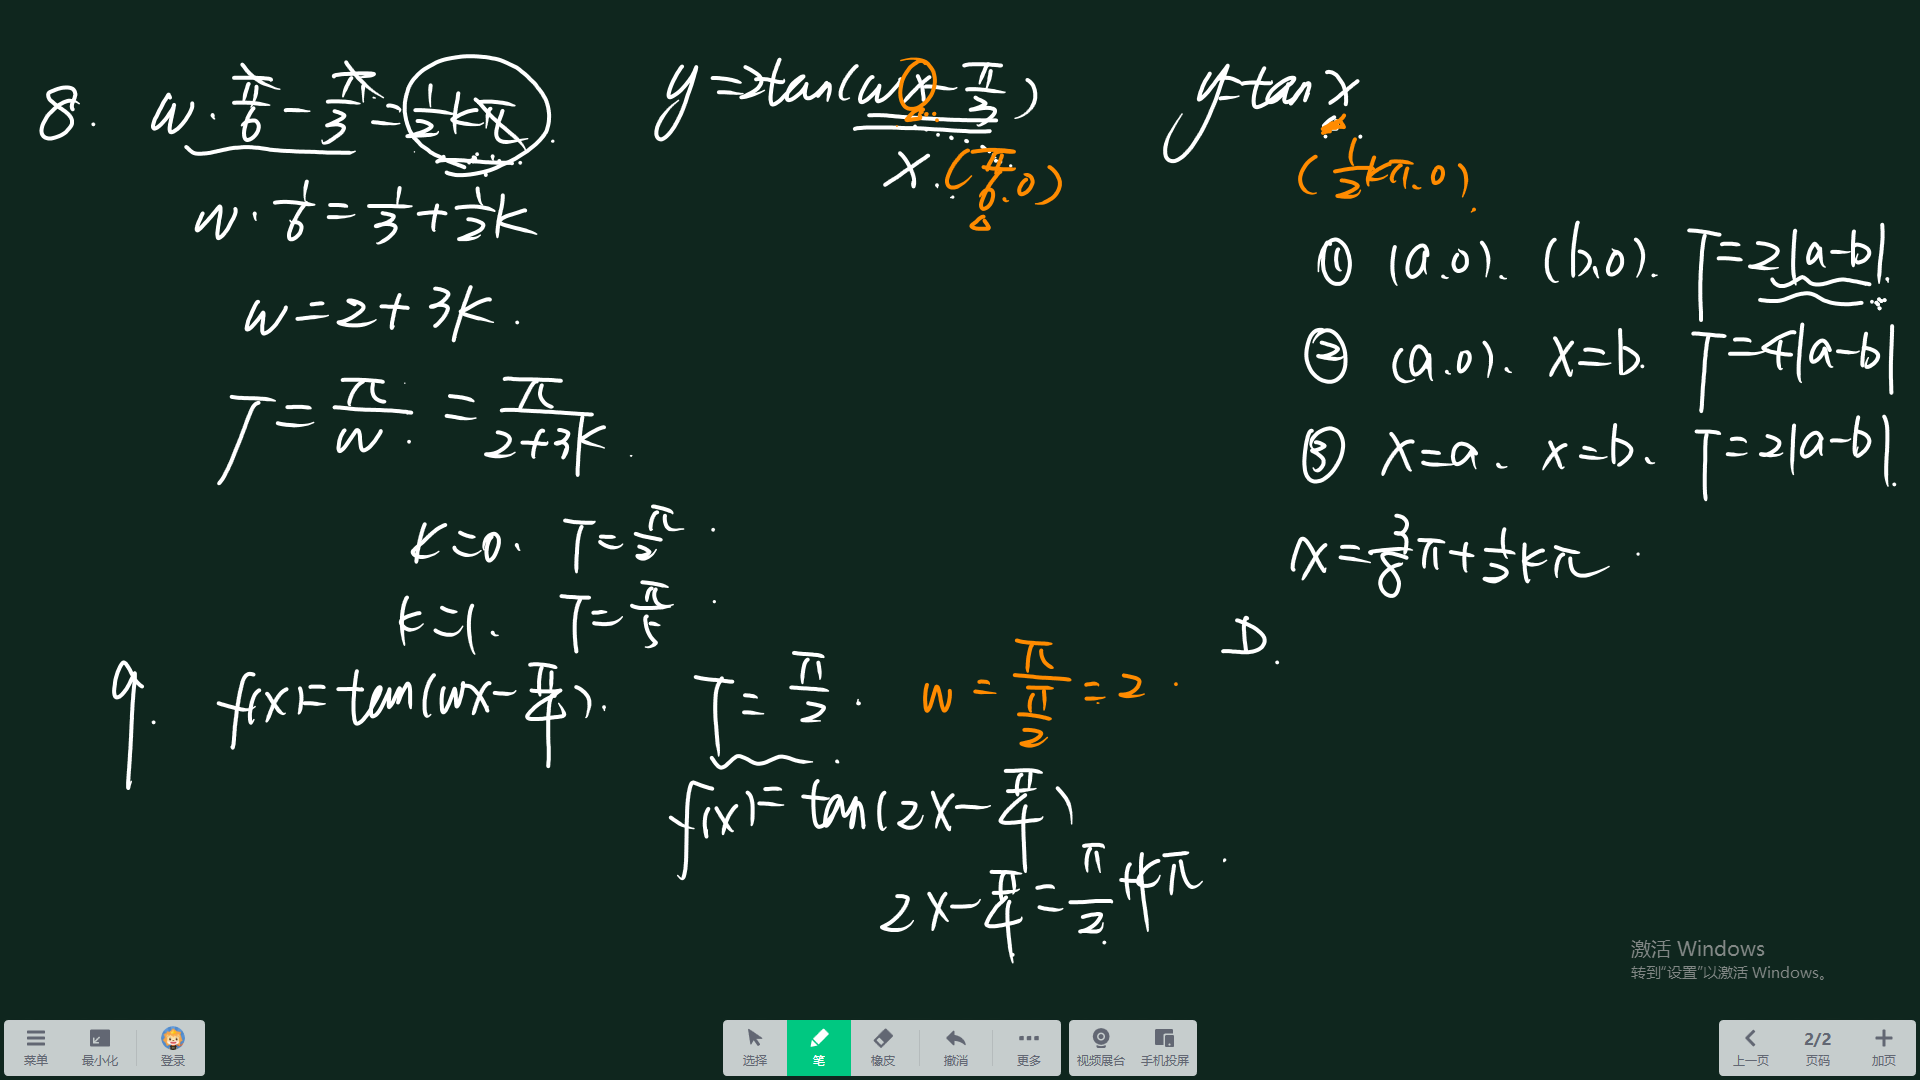 8. w·π/6 − π/3 = 1/2 kπ
w·1/6 = 1/3 + 1/2 k
w = 2 + 3k.
T = π/w = π/(2+3k).
k=0. T = π/2.
k=1. T = π/5.
y = 2tan(wx − π/3)
x. (π/6.0)
y=tan x
(1/2 kπ.0).
① (a.0). (b.0). T=2|a−b|.
② (a.0). x=b. T=4|a−b|
③ x=a. x=b. T=2|a−b|.
x = 3/8 π + 1/2 kπ.
D.
9. f(x) = tan(wx − π/4). T = π/2. w = π/(π/2) = 2.
f(x) = tan(2x − π/4)
2x − π/4 = π/2 + kπ.
激活 Windows
转到“设置”以激活 Windows。
菜单 最小化 登录 选择 笔 橡皮 撤消 更多 视频展台 手机投屏 上一页 2/2 页码 加页